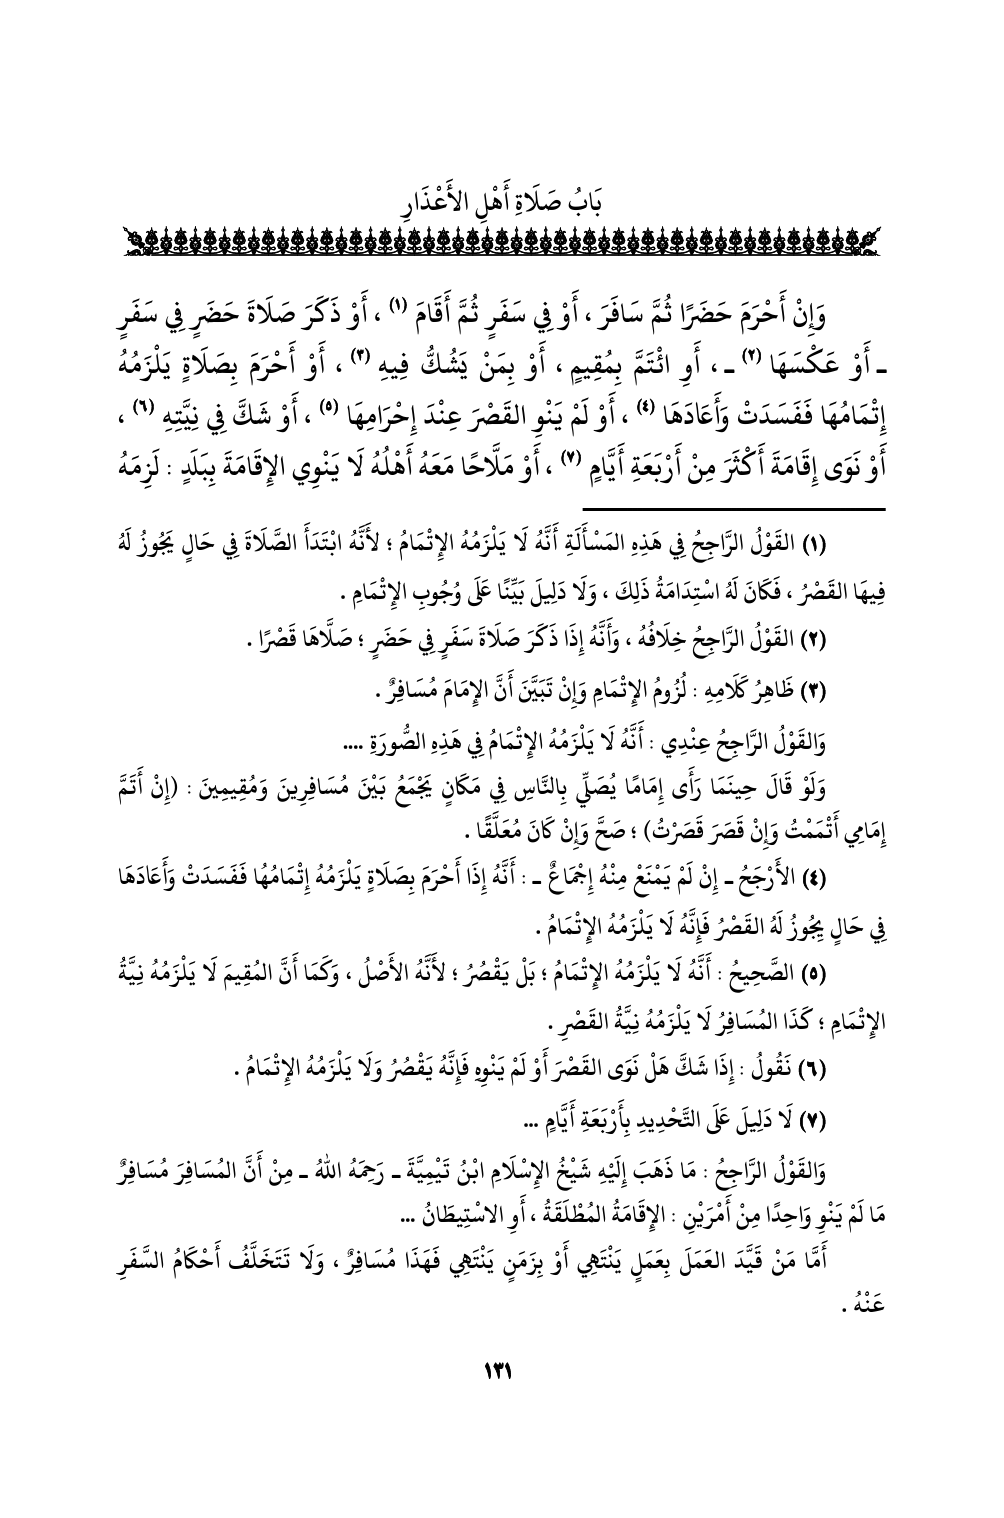 بَابُ صَلَاةِ أَهْلِ الأَعْذَارِ
وَإِنْ أَحْرَمَ حَضَرًا ثُمَّ سَافَرَ ، أَوْ فِي سَفَرٍ ثُمَّ أَقَامَ (١) ، أَوْ ذَكَرَ صَلَاةَ حَضَرٍ فِي سَفَرٍ
ـ أَوْ عَكْسَهَا (٢) ـ ، أَوِ ائْتَمَّ بِمُقِيمٍ ، أَوْ بِمَنْ يَشُكُّ فِيهِ (٣) ، أَوْ أَحْرَمَ بِصَلَاةٍ يَلْزَمُهُ
إِتْمَامُهَا فَفَسَدَتْ وَأَعَادَهَا (٤) ، أَوْ لَمْ يَنْوِ القَصْرَ عِنْدَ إِحْرَامِهَا (٥) ، أَوْ شَكَّ فِي نِيَّتِهِ (٦) ،
أَوْ نَوَى إِقَامَةَ أَكْثَرَ مِنْ أَرْبَعَةِ أَيَّامٍ (٧) ، أَوْ مَلَّاحًا مَعَهُ أَهْلُهُ لَا يَنْوِي الإِقَامَةَ بِبَلَدٍ : لَزِمَهُ
(١) القَوْلُ الرَّاجِحُ فِي هَذِهِ المَسْأَلَةِ أَنَّهُ لَا يَلْزَمُهُ الإِتْمَامُ ؛ لأَنَّهُ ابْتَدَأَ الصَّلَاةَ فِي حَالٍ يَجُوزُ لَهُ
فِيهَا القَصْرُ ، فَكَانَ لَهُ اسْتِدَامَةُ ذَلِكَ ، وَلَا دَلِيلَ بَيِّنًا عَلَى وُجُوبِ الإِتْمَامِ .
(٢) القَوْلُ الرَّاجِحُ خِلَافُهُ ، وَأَنَّهُ إِذَا ذَكَرَ صَلَاةَ سَفَرٍ فِي حَضَرٍ ؛ صَلَّاهَا قَصْرًا .
(٣) ظَاهِرُ كَلَامِهِ : لُزُومُ الإِتْمَامِ وَإِنْ تَبَيَّنَ أَنَّ الإِمَامَ مُسَافِرٌ .
وَالقَوْلُ الرَّاجِحُ عِنْدِي : أَنَّهُ لَا يَلْزَمُهُ الإِتْمَامُ فِي هَذِهِ الصُّورَةِ ....
وَلَوْ قَالَ حِينَمَا رَأَى إِمَامًا يُصَلِّي بِالنَّاسِ فِي مَكَانٍ يَجْمَعُ بَيْنَ مُسَافِرِينَ وَمُقِيمِينَ : (إِنْ أَتَمَّ
إِمَامِي أَتْمَمْتُ وَإِنْ قَصَرَ قَصَرْتُ) ؛ صَحَّ وَإِنْ كَانَ مُعَلَّقًا .
(٤) الأَرْجَحُ ـ إِنْ لَمْ يَمْنَعْ مِنْهُ إِجْمَاعٌ ـ : أَنَّهُ إِذَا أَحْرَمَ بِصَلَاةٍ يَلْزَمُهُ إِتْمَامُهَا فَفَسَدَتْ وَأَعَادَهَا
فِي حَالٍ يَجُوزُ لَهُ القَصْرُ فَإِنَّهُ لَا يَلْزَمُهُ الإِتْمَامُ .
(٥) الصَّحِيحُ : أَنَّهُ لَا يَلْزَمُهُ الإِتْمَامُ ؛ بَلْ يَقْصُرُ ؛ لأَنَّهُ الأَصْلُ ، وَكَمَا أَنَّ المُقِيمَ لَا يَلْزَمُهُ نِيَّةُ
الإِتْمَامِ ؛ كَذَا المُسَافِرُ لَا يَلْزَمُهُ نِيَّةُ القَصْرِ .
(٦) نَقُولُ : إِذَا شَكَّ هَلْ نَوَى القَصْرَ أَوْ لَمْ يَنْوِهِ فَإِنَّهُ يَقْصُرُ وَلَا يَلْزَمُهُ الإِتْمَامُ .
(٧) لَا دَلِيلَ عَلَى التَّحْدِيدِ بِأَرْبَعَةِ أَيَّامٍ ...
وَالقَوْلُ الرَّاجِحُ : مَا ذَهَبَ إِلَيْهِ شَيْخُ الإِسْلَامِ ابْنُ تَيْمِيَّةَ ـ رَحِمَهُ اللهُ ـ مِنْ أَنَّ المُسَافِرَ مُسَافِرٌ
مَا لَمْ يَنْوِ وَاحِدًا مِنْ أَمْرَيْنِ : الإِقَامَةُ المُطْلَقَةُ ، أَوِ الاسْتِيطَانُ ...
أَمَّا مَنْ قَيَّدَ العَمَلَ بِعَمَلٍ يَنْتَهِي أَوْ بِزَمَنٍ يَنْتَهِي فَهَذَا مُسَافِرٌ ، وَلَا تَتَخَلَّفُ أَحْكَامُ السَّفَرِ
عَنْهُ .
١٣١